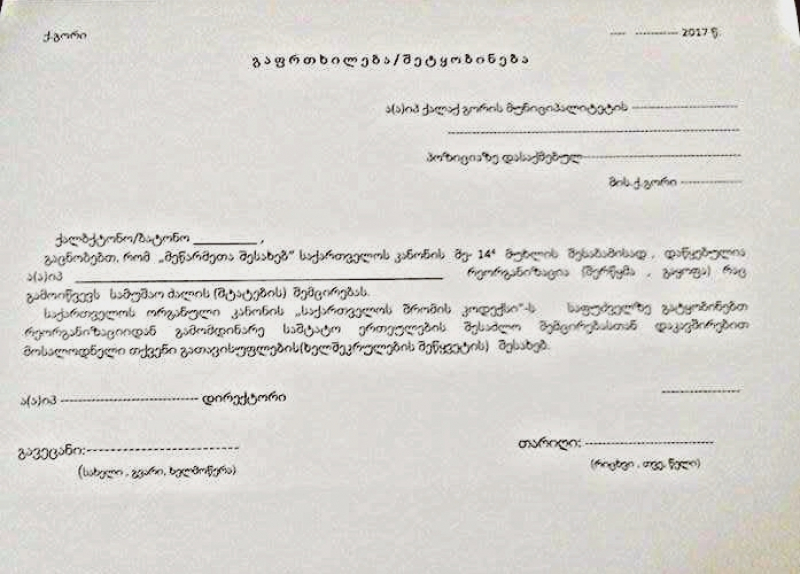 ქ.გორი
---- ----------- 2017 წ.
გაფრთხილება/შეტყობინება
ა(ა)იპ ქალაქ გორის მუნიციპალიტეტის ---------------------------
----------------------------------------------------------------------------
პოზიციაზე დასაქმებულ----------------------------------------
მის.ქ.გორი ----------------
ქალბქტონო/ბატონო __________ ,
გაცნობებთ, რომ „მეწარმეთა შესახებ“ საქართველოს კანონის მე- 14⁴ მუხლის შესაბამისად , დაწყებულია
ა(ა)იპ ______________________________ რეორგანიზაცია (შერწყმა , გაყოფა) რაც
გამოიწვევს სამუშაო ძალის (შტატების) შემცირებას.
საქართველოს ორგანული კანონის „საქართველოს შრომის კოდექსი“-ს საფუძველზე გატყობინებთ
რეორგანიზაციიდან გამომდინარე საშტატო ერთეულების შესაძლო შემცირებასთან დაკავშირებით
მოსალოდნელი თქვენი გათავისუფლების(ხელშეკრულების შეწყვეტის) შესახებ.
ა(ა)იპ ----------------------------------- დირექტორი --------------------
გავეცანი:--------------------------------------- თარიღი: ---------------------------------
(სახელი , გვარი, ხელმოწერა) (რიცხვი , თვე, წელი)